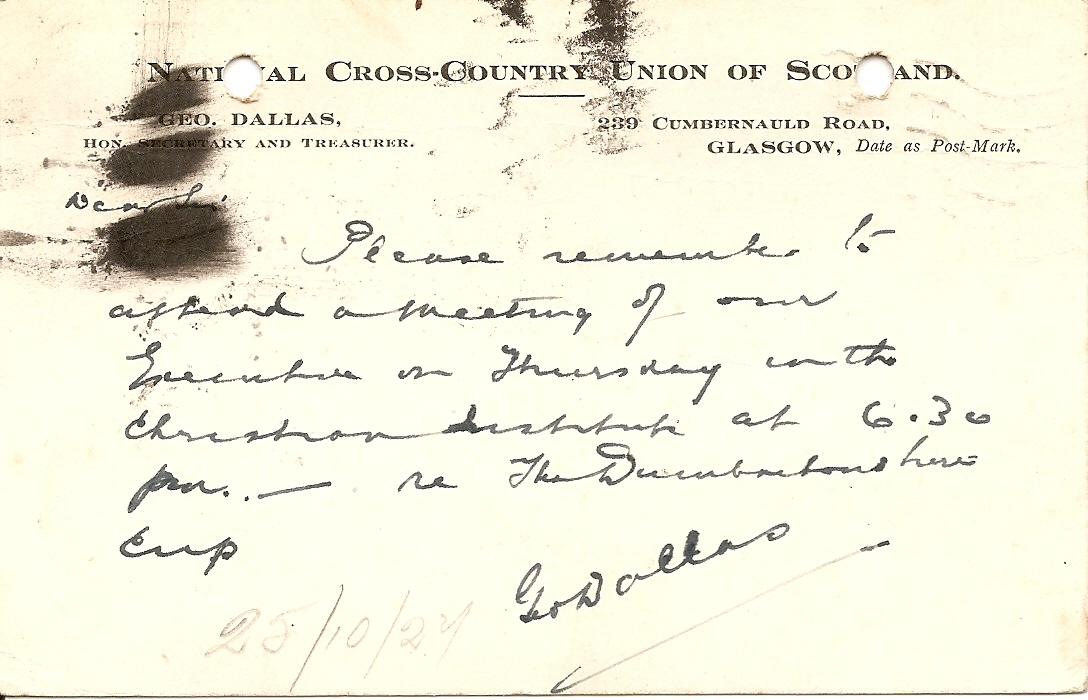 NATIONAL CROSS-COUNTRY UNION OF SCOTLAND.
GEO. DALLAS,
HON. SECRETARY AND TREASURER.
239 CUMBERNAULD ROAD,
GLASGOW, Date as Post-Mark.
Dear Sir.
Please remember to
attend a meeting of our
Executive on Thursday in the
Christian Institute at 6.30
pm. — re The Dumbartonshire
Cup
Geo Dallas
25/10/27